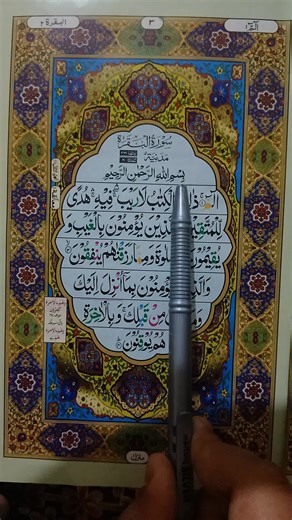 البقرة ٢
٣
الٓمّٓ ١
سُوْرَةُ الْبَقَرَةِ
مَدَنِيَّةٌ
بِسْمِ اللّٰهِ الرَّحْمٰنِ الرَّحِيْمِ
الٓمّٓ ذٰلِ الْكِتٰبُ لَا رَيْبَ فِيْهِ هُدًى
لِّلْمُتَّقِيْنَ الَّذِيْنَ يُؤْمِنُوْنَ بِالْغَيْبِ وَ
يُقِيْمُوْنَ لٰوةَ وَمِمَّا رَزَقْنٰهُمْ يُنْفِقُوْنَ
وَالَّذِ يُؤْمِنُوْنَ بِمَآ اُنْزِلَ اِلَيْكَ
وَمَآ مِنْ قَبْلِكَ وَبِالْاٰخِرَةِ
هُمْ يُوْقِنُوْنَ
منزل